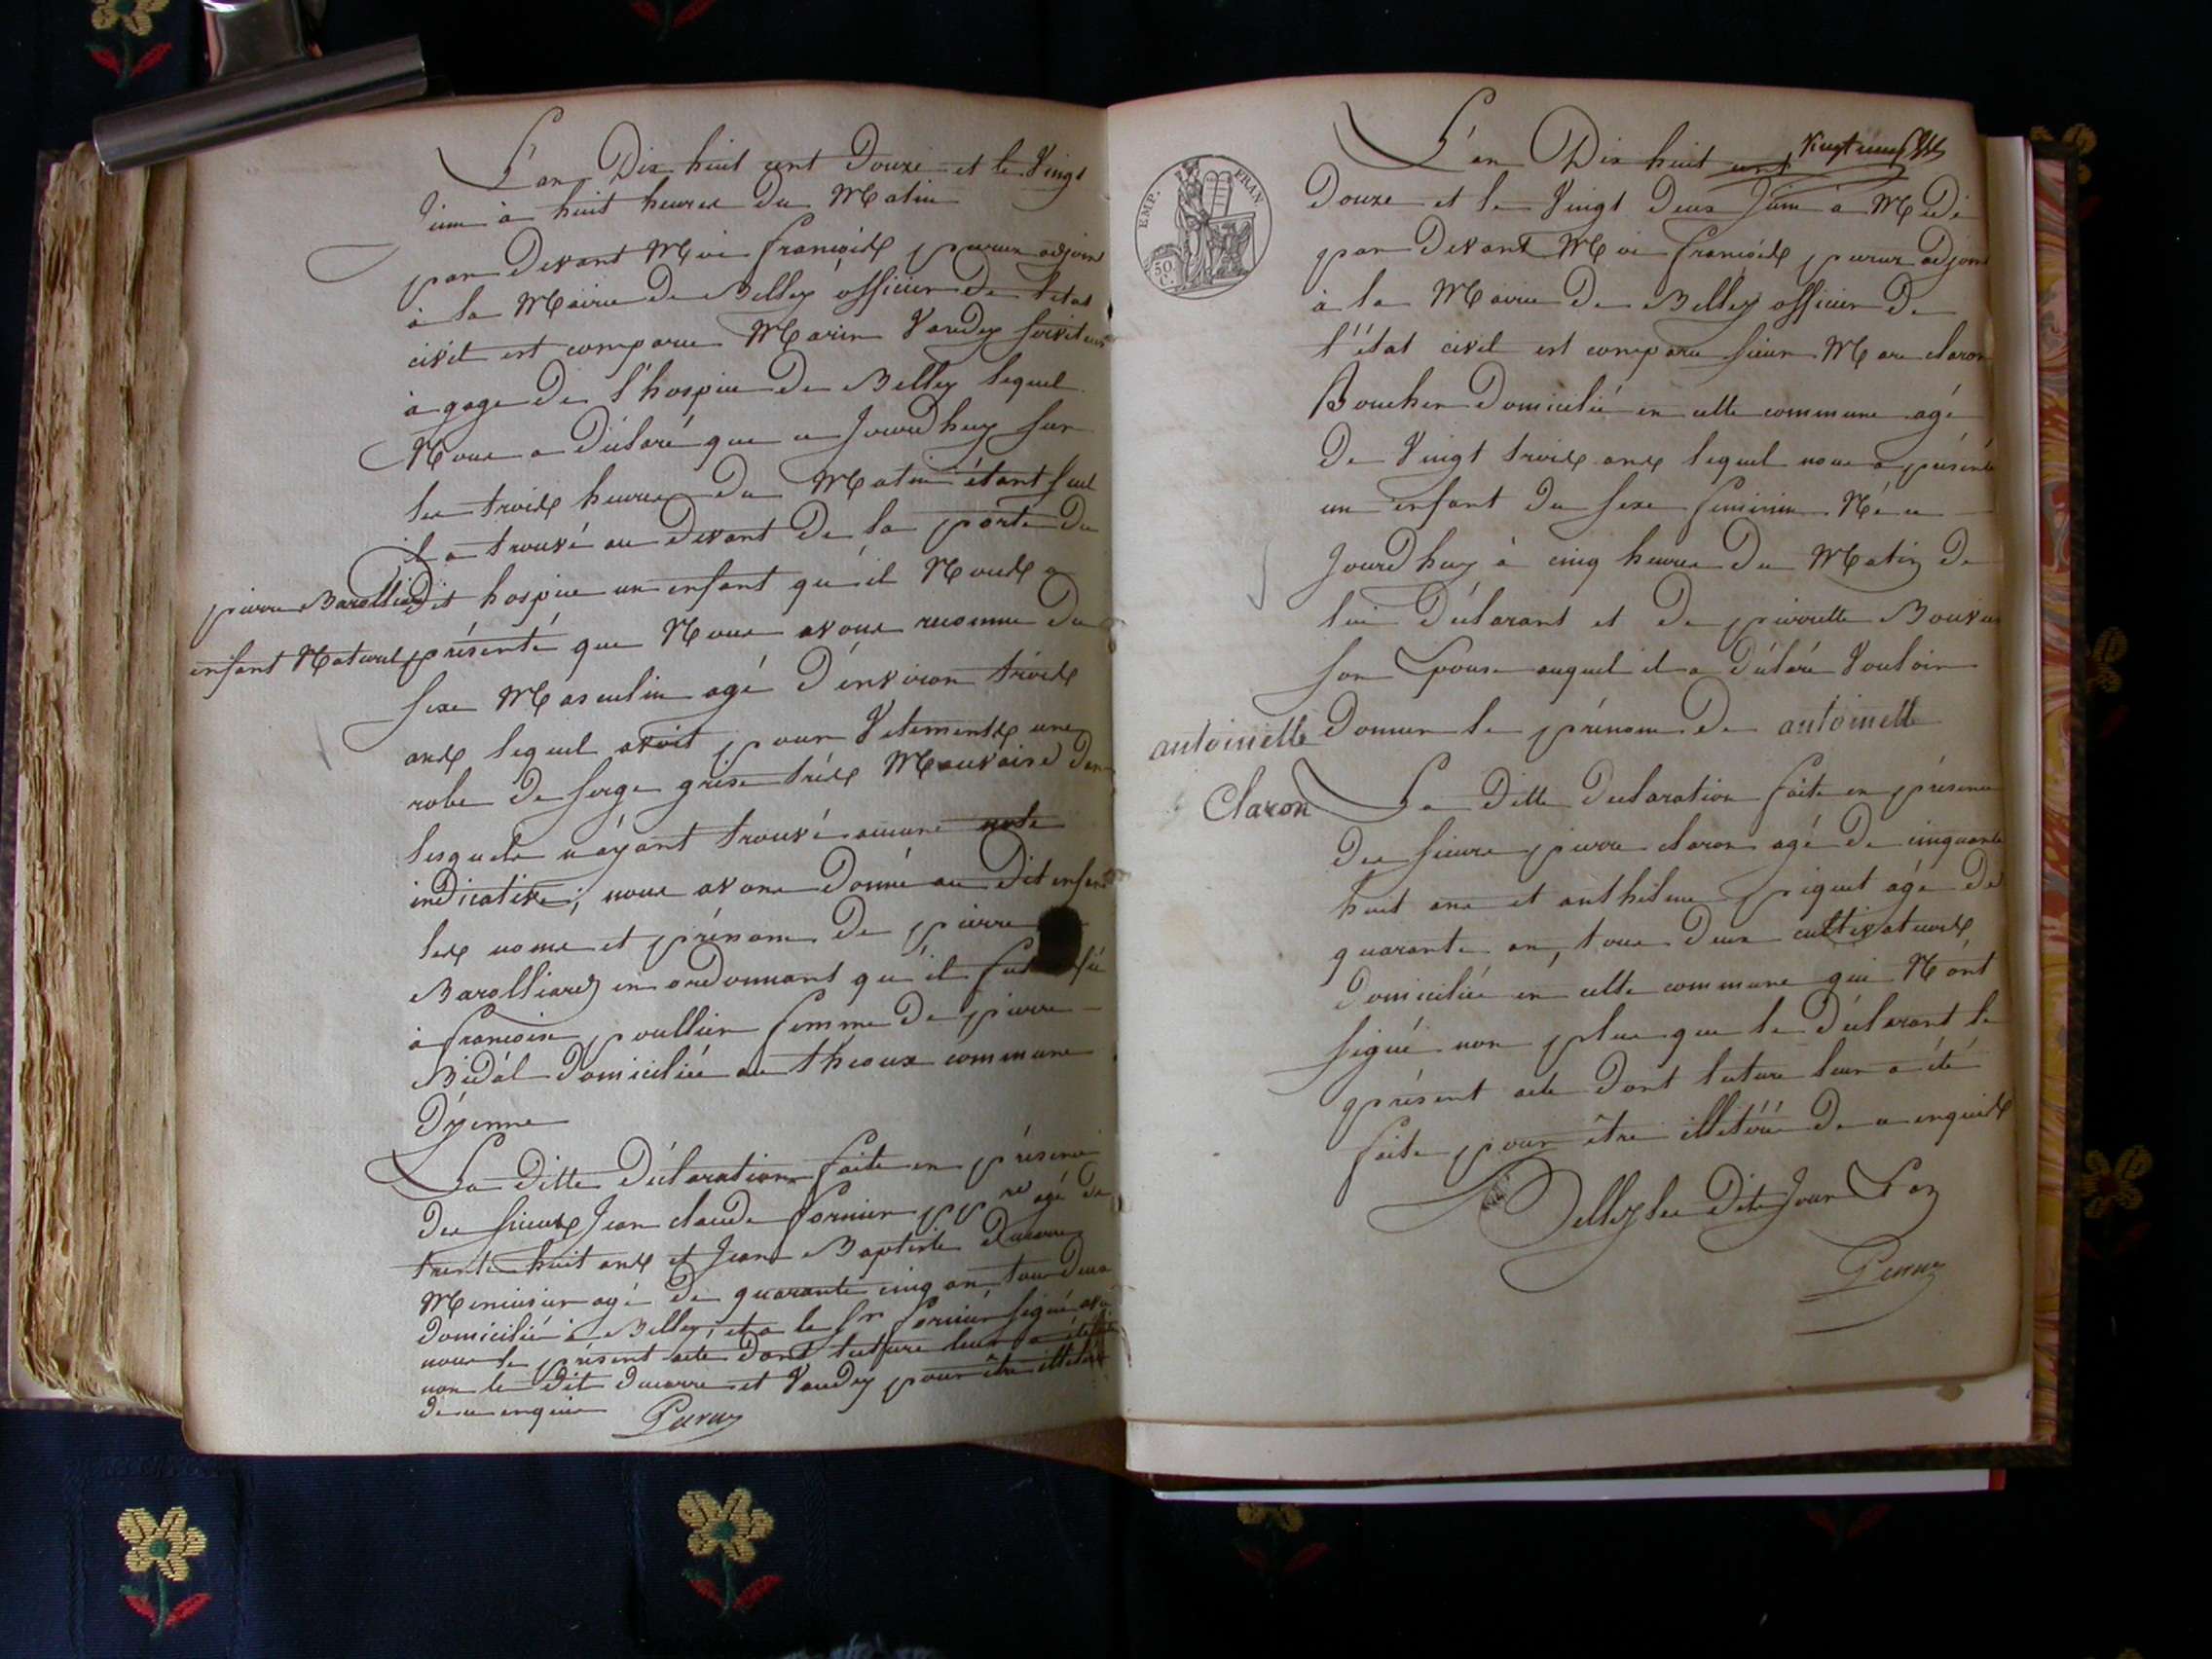 L'an Dix huit cent Douze et le Vingt
Juin à huit heures du Matin
par devant Moi françois peruz adjoint
à la Mairie de Belley officier de l'état
civil est comparu Marin Vaudey serviteur
à gage de l'hospice de Belley lequel
Nous a déclaré que ce Jourd'huy sur
les trois heures du Matin étant seul
il a trouvé au devant de la porte du
dit hospice un enfant qu'il Nous a
présenté que Nous avons reconnu du
sexe Masculin agé d'environ trois
ans lequel avoit pour Vetements une
robe de serge grise très Mauvaise dans
lesquels n'ayant trouvé aucune note
indicative, nous avons donné au dit enfant
les noms et prénoms de pierre
Barolliard en ordonnant qu'il fut
à françoise poullier femme de pierre
Bidal domicilié au theoux commune
d'yenne
La ditte déclaration faite en présence
des sieurs Jean claude fornier ppre agé de
trente huit ans et Jean Baptiste Ducarre
Menuisier agé de quarante cinq an, tous deux
domiciliés à Belley, et a le Sr fornier signé avec
nous le présent acte dont lecture leur a été faite
non le dit Ducarre et Vaudey pour être illetérés
de ce enquis
Peruz
pierre Barolliard
enfant Naturel
EMP. FRAN
50 C.
L'an Dix huit cent
Douze et le Vingt deux Juin à Midi
par devant Moi françois peruz adjoint
à la Mairie de Belley officier de
l'état civil est comparu sieur Marc claron
Boucher domicilié en cette commune agé
de Vingt trois ans lequel nous a présenté
un enfant du sexe feminin Né ce
Jourd'huy à cinq heures du Matin de
lui déclarant et de pierrette Bouvier
son Epouse auquel il a déclaré Vouloir
donner le prénom de antoinette
antoinette
Claron
La ditte déclaration faite en présence
des sieurs pierre claron agé de cinquante
huit ans et anthelme piquet agé de
quarante an, tous deux cultivateurs
domiciliés en cette commune qui N'ont
signé non plus que le déclarant le
présent acte dont lecture leur a été
faite pour être illetérés de ce enquis
Belley les dits Jour & an
Peruz